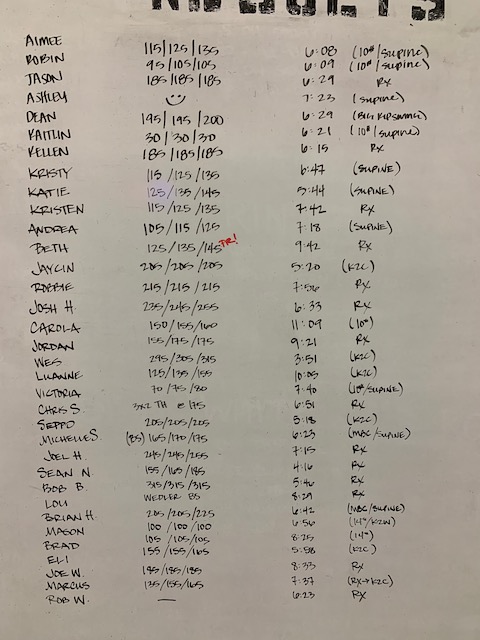 RESULTS
AIMEE 115/125/135 6:08 (10#/SUPINE)
ROBIN 95/105/105 6:09 (10#/SUPINE)
JASON 185/185/185 6:29 RX
ASHLEY 7:23 (SUPINE)
DEAN 195/195/200 6:29 (BIG KIPSWING)
KAITLIN 30/30/30 6:21 (10#/SUPINE)
KELLEN 185/185/185 6:15 RX
KRISTY 115/125/135 6:47 (SUPINE)
KATIE 125/135/145 5:44 (SUPINE)
KRISTEN 115/125/135 7:42 RX
ANDREA 105/115/125 7:18 (SUPINE)
BETH 125/135/145 PR! 9:42 RX
JAYCIN 205/205/205 5:20 (K2C)
ROBBIE 215/215/215 7:56 RX
JOSH H. 235/245/255 6:33 RX
CAROLA 150/155/160 11:09 (10#)
JORDAN 155/175/175 9:21 RX
WES 295/305/315 3:51 (K2C)
LUANNE 125/135/155 10:05 (K2C)
VICTORIA 70/75/80 7:40 (10#/SUPINE)
CHRIS S. 3X2 TH @ 175 6:51 RX
SEPPO 205/205/205 5:18 (K2C)
MICHELLE S. (BS) 165/170/175 6:23 (MBC/SUPINE)
JOEL H. 245/245/255 7:15 RX
SEAN N. 155/165/185 4:16 RX
BOB B. 315/315/315 5:46 RX
LOU BS 8:29 RX
BRIAN H. 205/205/225 6:42 (MBC/SUPINE)
MASON 100/100/100 6:56 (14#/K2W)
BRAD 105/105/105 8:25 (14#)
ELI 155/155/165 5:58 (K2C)
JOE W. 185/185/185 8:33 RX
MARCUS 135/155/165 7:37 (RX→K2C)
ROB W. — 6:23 RX